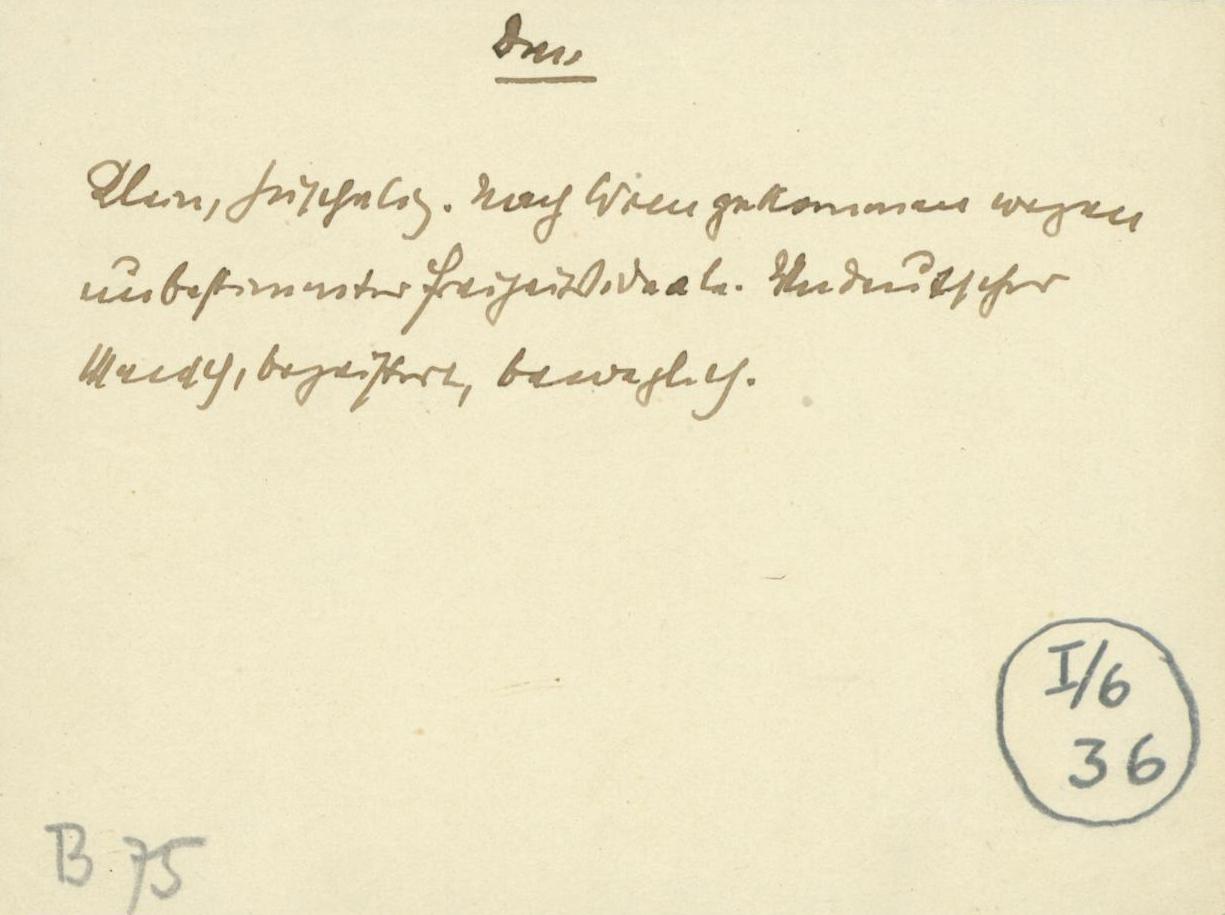 Klein, . Nach Wien gekommen wegen
unbestimmter Freiheitsideale. Undeutscher
Mensch, begeistert, beweglich.
I/6
36
B 75